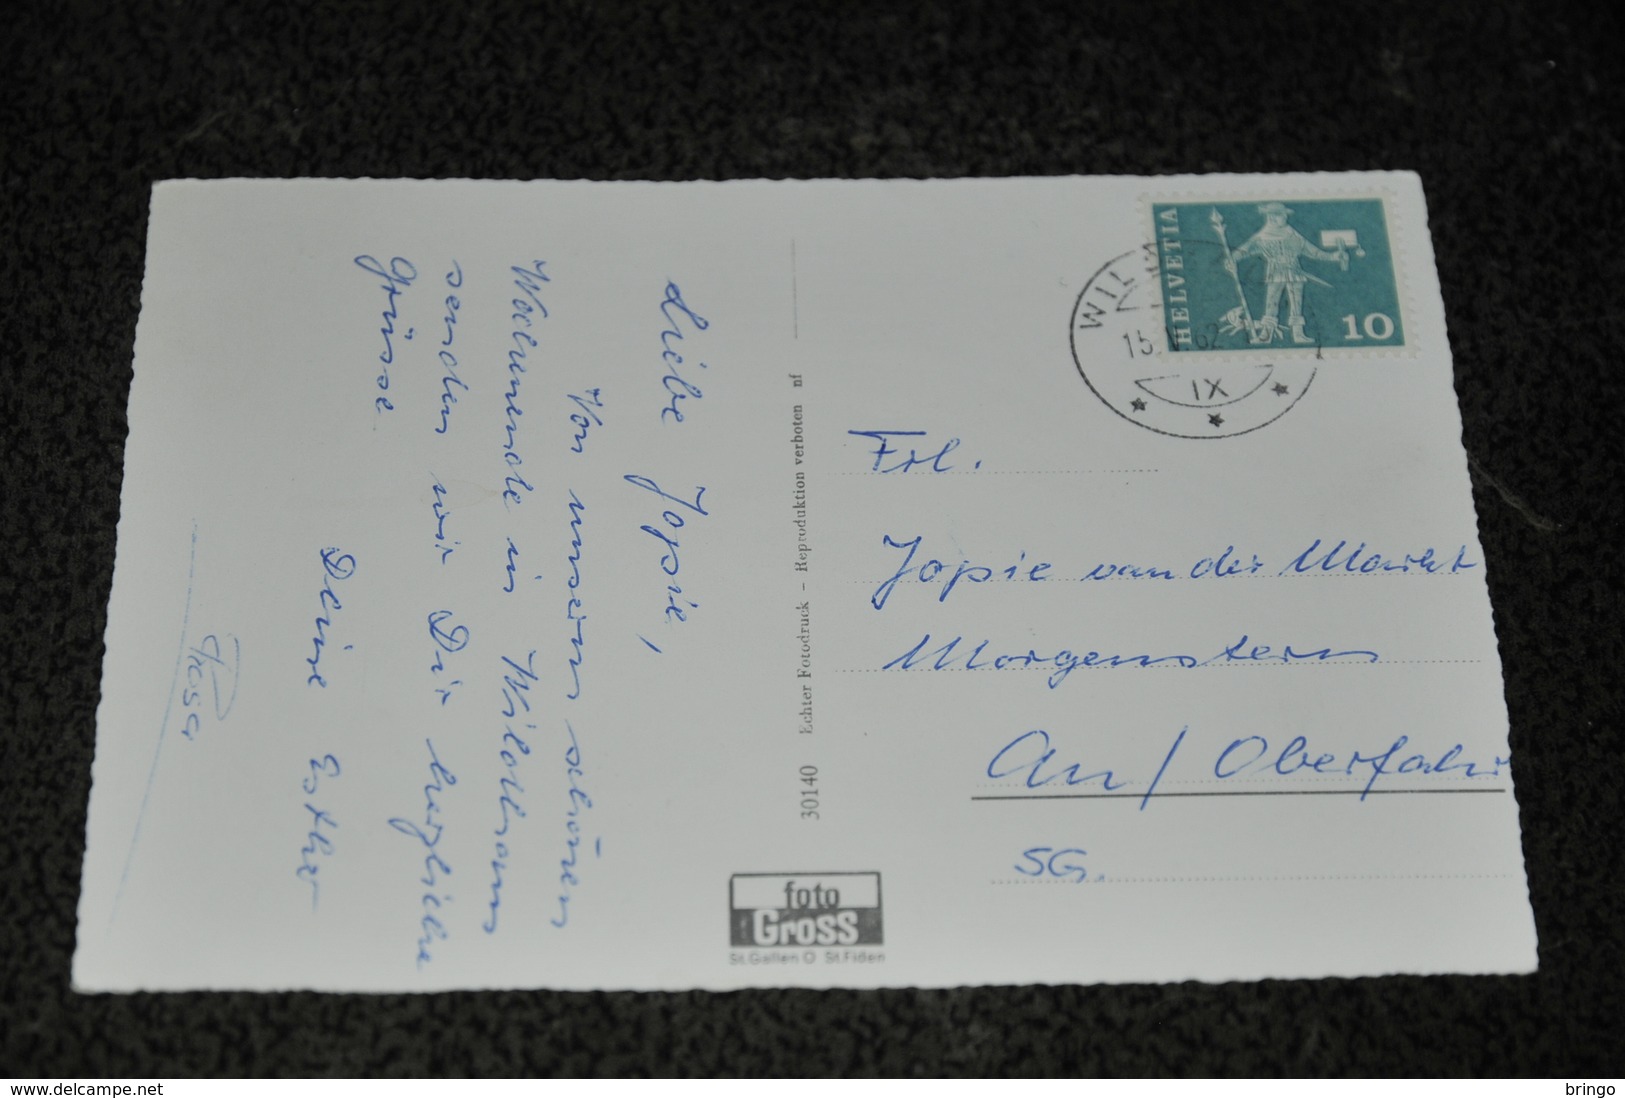 Liebe Jopie,
Von unserm schönen
Wochenende in Wildhaus
senden wir Dir herzliche
Grüsse
Deine Esther
Rosa
30140 Echter Fotodruck – Reproduktion verboten nf
foto
Gross
St.Gallen O St.Fiden
HELVETIA
10
15. 62
IX
Frl.
Jopie van der Markt
Morgenstern
Au / Oberfahr
SG.
www.delcampe.net
bringo